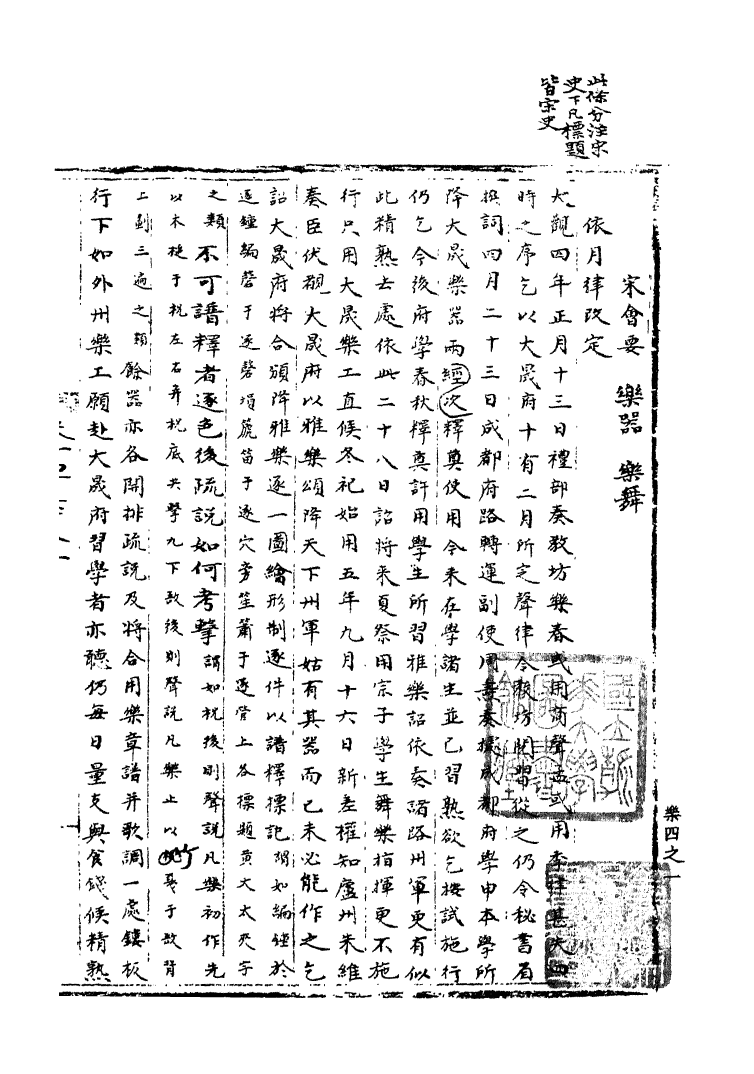 此條分注宋
史下凡標題
皆宗史
宋會要　樂器　樂舞
依月律改定
大觀四年正月十三日禮部奏教坊樂春或用商聲孟或用季律甚失四
時之序乞以大晟府十有二月所定聲律令教坊閱習從之仍令秘書省
撰詞四月二十三日成都府路轉運副使周燾奏據成都府學申本學所
降大晟樂器兩經次釋奠使用今來在學諸生並已習熟欲乞按試施行
仍乞今後府學春秋釋奠許用學生所習雅樂詔依奏諸路州軍更有似
此精熟去處依此二十八日詔將來夏祭用宗子學生舞樂指揮更不施
行只用大晟樂工直候冬祀始用五年九月十六日新差權知廬州朱維
奏臣伏覩大晟府以雅樂頒降天下州軍姑有其器而已未必能作之乞
詔大晟府將合頒降雅樂逐一圖繪形制逐件以譜釋標記謂如編鍾於
逐鍾編磬于逐磬塤篪笛于逐穴旁笙簫于逐管上各標題黄大太夾字
之類不可譜釋者逐色後疏説如何考擊謂如柷後則聲説凡樂初作先
以木椎于柷左右弃柷底共擊九下敔後則聲説凡樂止以竹戛于敔背
上劃三遍之類餘器亦各開排疏説及將合用樂章譜并歌調一處鏤板
行下如外州樂工願赴大晟府習學者亦聽仍每日量支與食錢候精熟
樂四之一